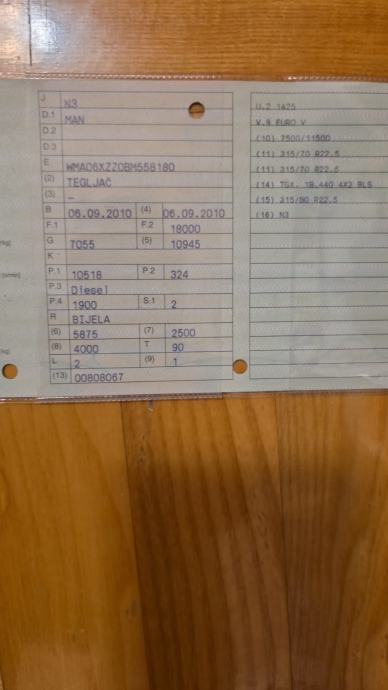 J N3
D.1 MAN
D.2
D.3
E WMAD6XZZ0BM558180
(2) TEGLJAČ
(3) -
B 06.09.2010 (4) 06.09.2010
F.1 F.2 18000
G 7055 (5) 10945
K -
P.1 10518 P.2 324
P.3 Diesel
P.4 1900 S.1 2
R BIJELA
(6) 5875 (7) 2500
(8) 4000 T 90
L 2 (9) 1
(13) 00808067
U.2 1425
V.9 EURO V
(10) 7500/11500
(11) 315/70 R22.5
(11) 315/70 R22.5
(14) TGX. 18.440 4X2 BLS
(15) 315/80 R22.5
(16) N3